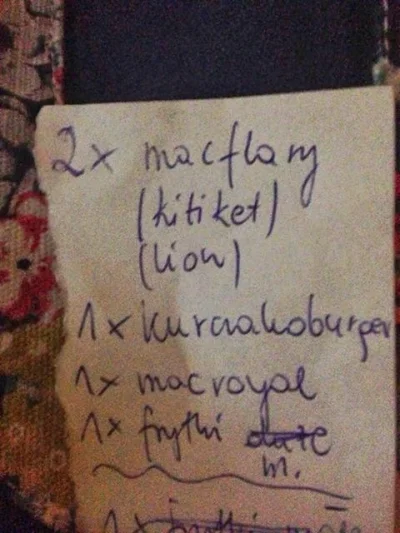 2x macflary
(kitiket)
(lion)
1x kurczakoburger
1x macroyal
1x frytki duże
m.
1x frytki małe